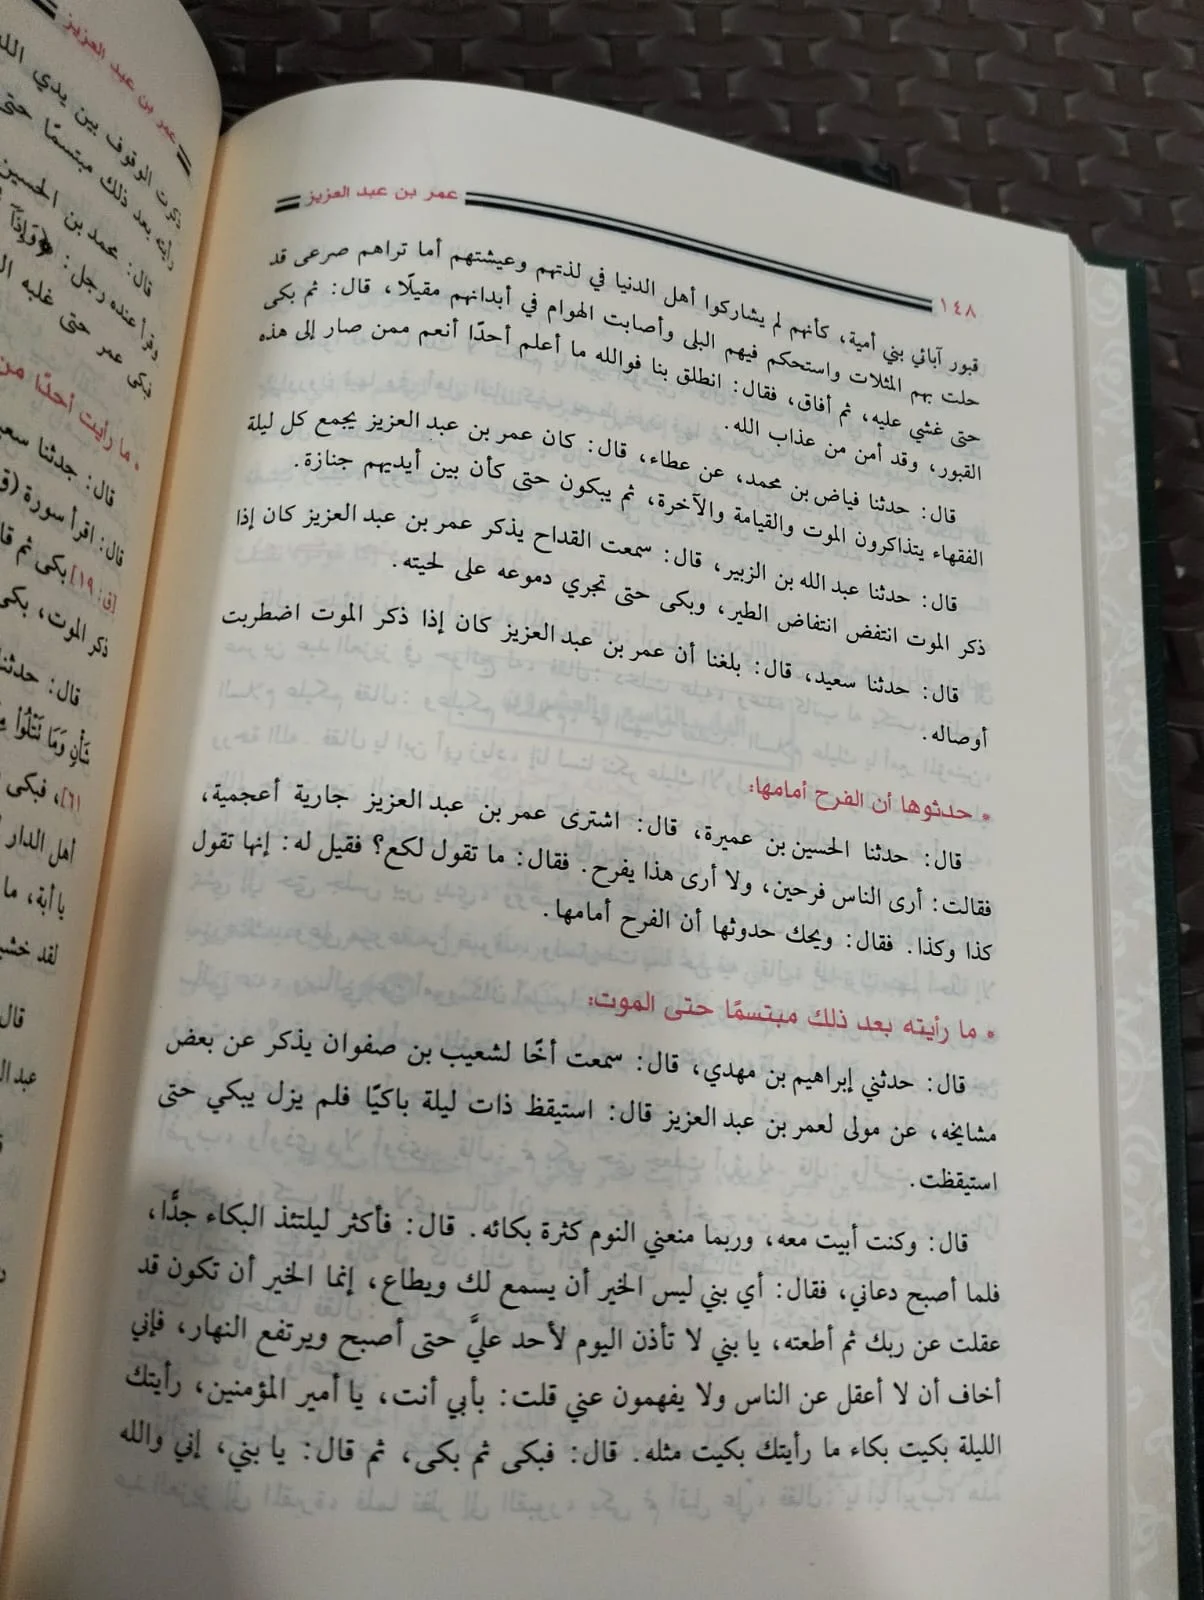 ١٤٨ عمر بن عبد العزيز
قبور آبائي بني أمية، كأنهم لم يشاركوا أهل الدنيا في لذتهم وعيشتهم أما تراهم صرعى قد
حلت بهم المثلات واستحكم فيهم البلى وأصابت الهوام في أبدانهم مقيلًا، قال: ثم بكى
حتى غشي عليه، ثم أفاق، فقال: انطلق بنا فوالله ما أعلم أحدًا أنعم ممن صار إلى هذه
القبور، وقد أمن من عذاب الله.
قال: حدثنا فياض بن محمد، عن عطاء، قال: كان عمر بن عبد العزيز يجمع كل ليلة
الفقهاء يتذاكرون الموت والقيامة والآخرة، ثم يبكون حتى كأن بين أيديهم جنازة.
قال: حدثنا عبد الله بن الزبير، قال: سمعت القداح يذكر عمر بن عبد العزيز كان إذا
ذكر الموت انتفض انتفاض الطير، وبكى حتى تجري دموعه على لحيته.
قال: حدثنا سعيد، قال: بلغنا أن عمر بن عبد العزيز كان إذا ذكر الموت اضطربت
أوصاله.
• حدثوها أن الفرح أمامها:
قال: حدثنا الحسين بن عميرة، قال: اشترى عمر بن عبد العزيز جارية أعجمية،
فقالت: أرى الناس فرحين، ولا أرى هذا يفرح. فقال: ما تقول لكع؟ فقيل له: إنها تقول
كذا وكذا. فقال: ويحك حدثوها أن الفرح أمامها.
• ما رأيته بعد ذلك مبتسمًا حتى الموت:
قال: حدثني إبراهيم بن مهدي، قال: سمعت أخًا لشعيب بن صفوان يذكر عن بعض
مشايخه، عن مولى لعمر بن عبد العزيز قال: استيقظ ذات ليلة باكيًا فلم يزل يبكي حتى
استيقظت.
قال: وكنت أبيت معه، وربما منعني النوم كثرة بكائه. قال: فأكثر ليلتئذ البكاء جدًّا،
فلما أصبح دعاني، فقال: أي بني ليس الخير أن يسمع لك ويطاع، إنما الخير أن تكون قد
عقلت عن ربك ثم أطعته، يا بني لا تأذن اليوم لأحد عليَّ حتى أصبح ويرتفع النهار، فإني
أخاف أن لا أعقل عن الناس ولا يفهمون عني قلت: بأبي أنت، يا أمير المؤمنين، رأيتك
الليلة بكيت بكاء ما رأيتك بكيت مثله. قال: فبكى ثم بكى، ثم قال: يا بني، إني والله
عمر بن عبد العزيز
ذكرت الوقوف بين يدي الله
رأيته بعد ذلك مبتسمًا حتى
قال: محمد بن الحسين
وقرأ عنده رجل: ﴿وَإِذَآ
فبكى عمر حتى غلبه
• ما رأيت أحدًا من
قال: حدثنا سعيد
قال: اقرأ سورة (ق
[ق: ١٩] بكى ثم
ذكر الموت، بكى
قال: حدثنا
شَأْنٍ وَمَا نَتْلُوا۟
[٦١]، فبكى
أهل الدار
يا أبة، ما
لقد خشيت
قال